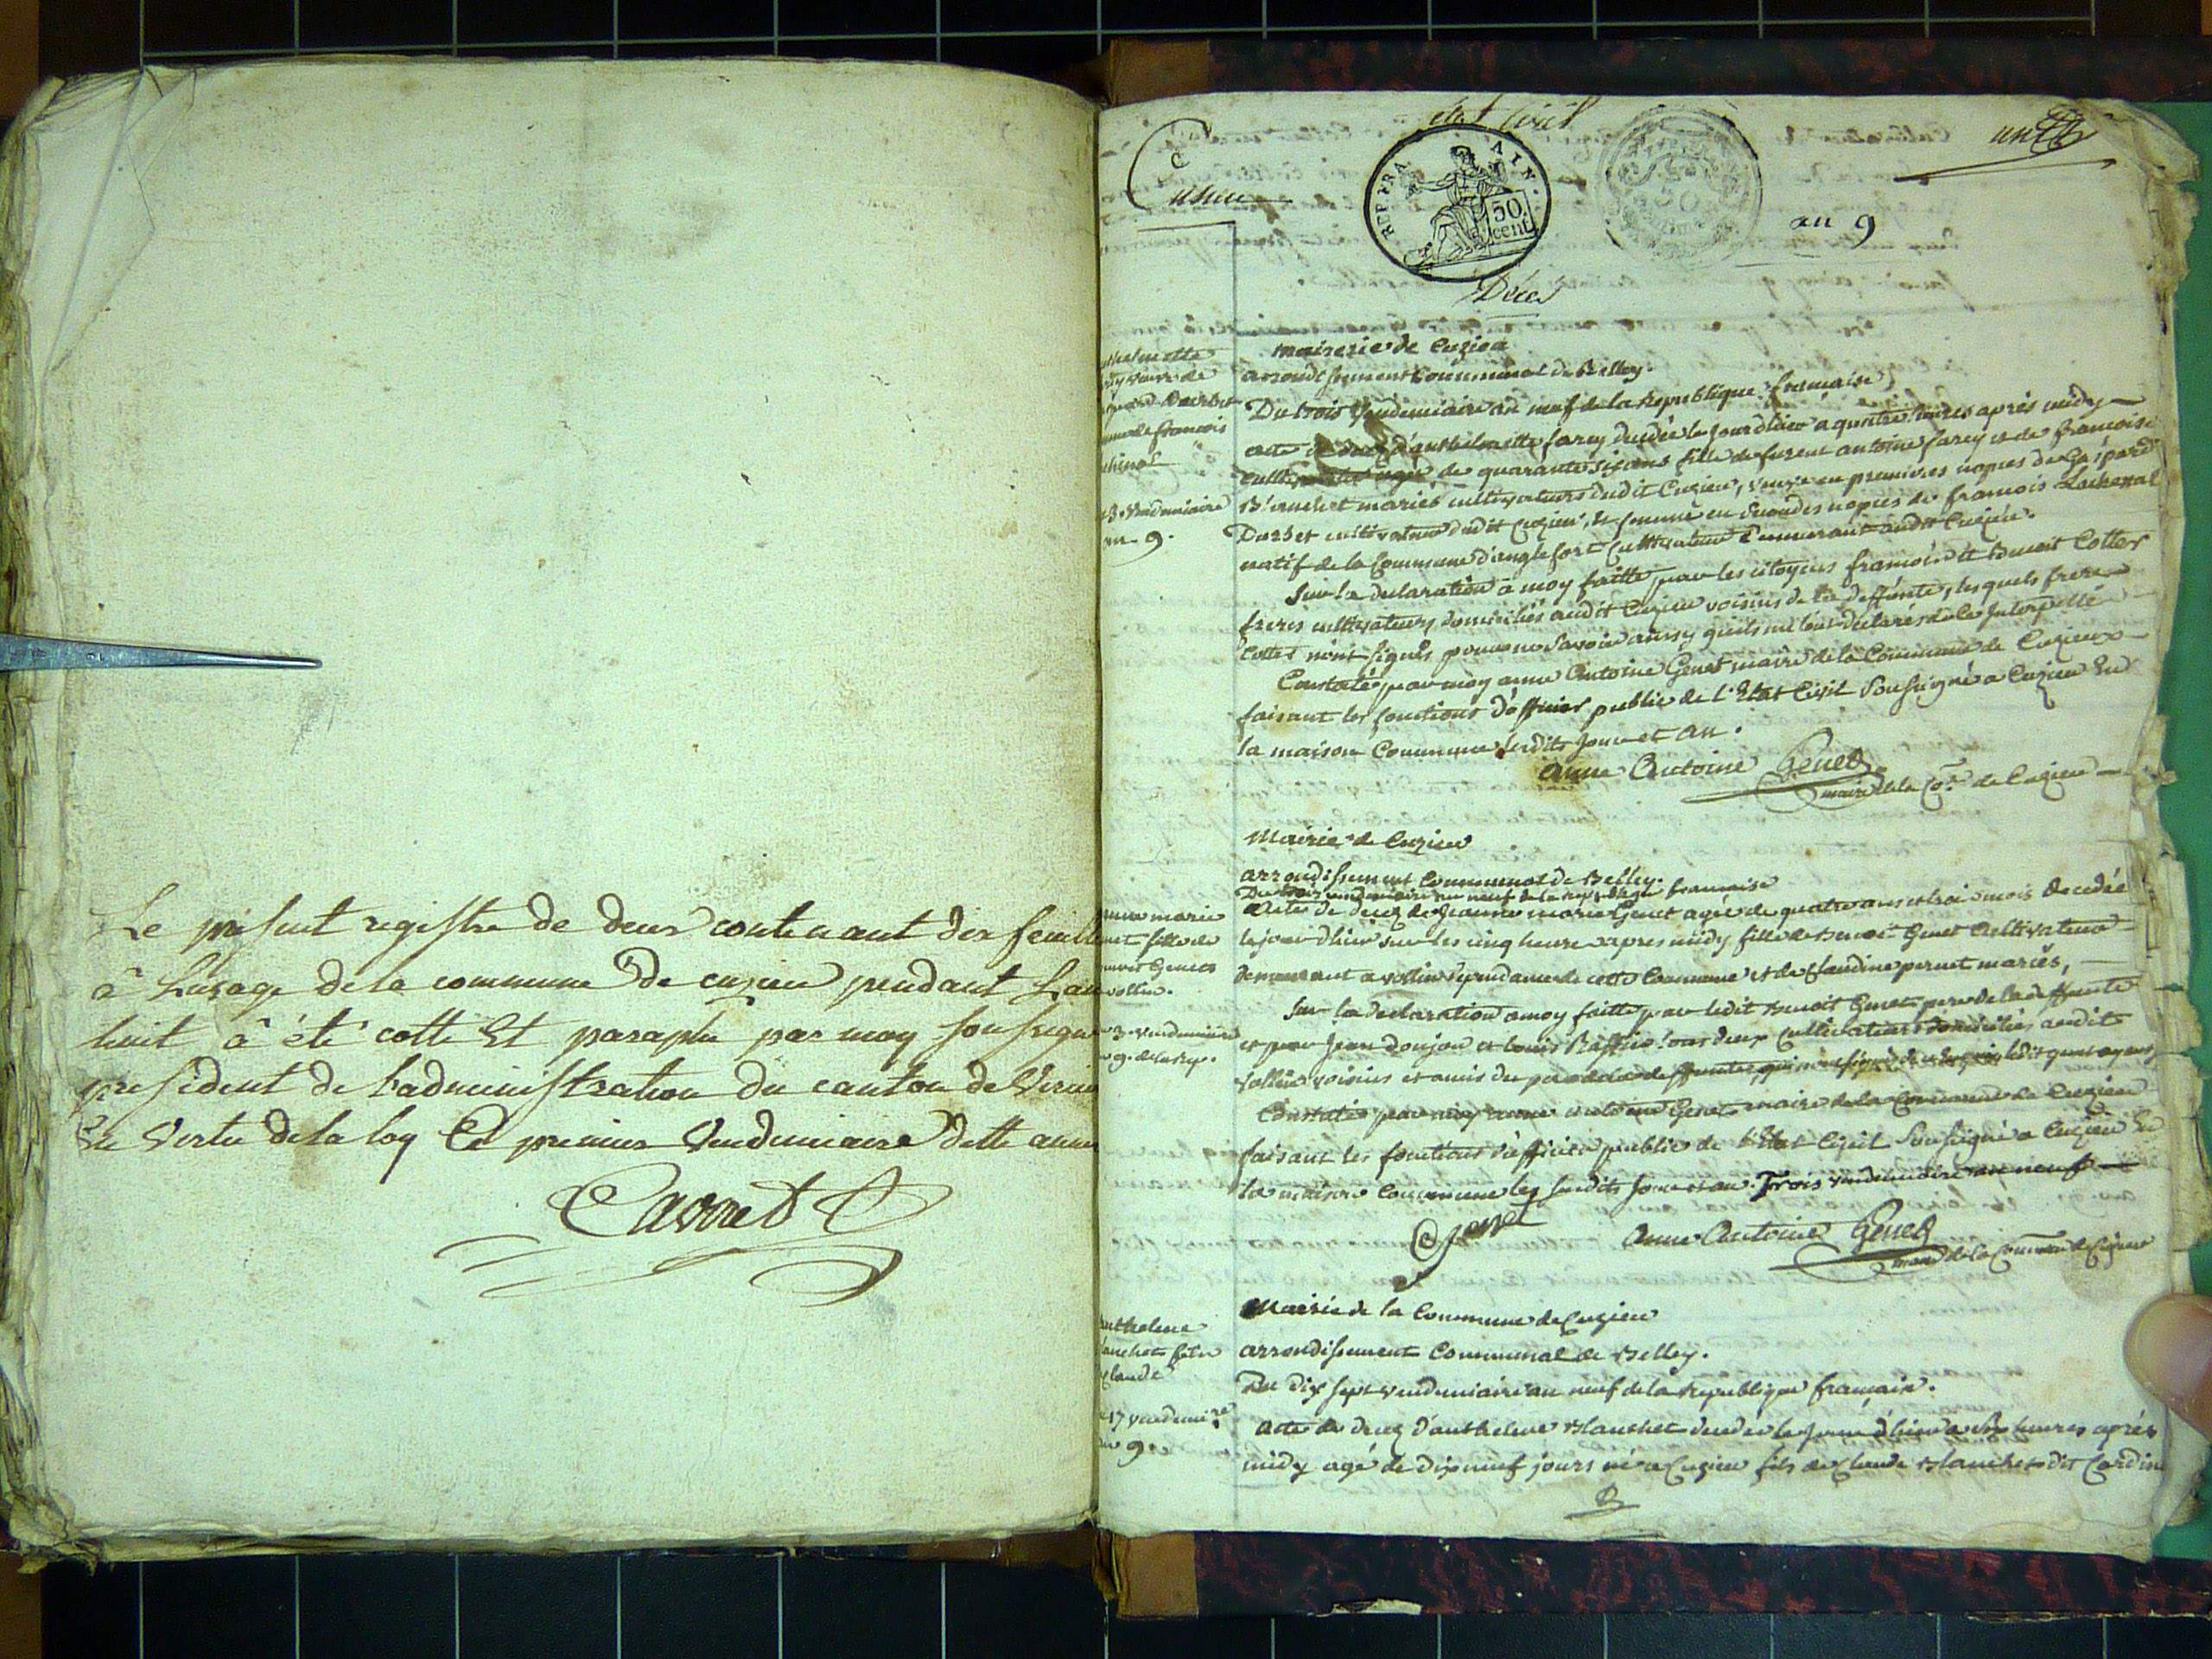 Le présent registre de deux contenant dix feuill
à Lusage de la commune de cuzieu pendant Lan
huit à été cotté Et paraphé par moy soussigné
president de L'administration du canton de Virieu
En Vertu de la loy Ce premier Vendemiaire dette anné
Carrret
état Civil
Cusieu
REP. FRA. AIN.
50 cent
50
an 9
Décès
mairerie de Cuzieu
arrondissement Communal de Belley.
thelmette
rey veuve de
Darbet
de francois
chenal
3. Vendemiaire
an 9.
Du trois Vendemiaire an neuf de la Republique francaise
acte de decez d'anthelmette farey decedée le jour d'hier a quatre heures après midy
agée de quarante six ans fille de furent antoine farey et de francoise
Blanchet mariés cultivateurs dudit Cuzieu, veuve en premières nopces de Gaspard
Darbet cultivateur dudit Cuzieu, et femme en secondes nopces de francois Lachenal
natif de la Commune d'anglefort Cultivateur demeurant audit Cuzieu.
Sur la declaration à moy faitte par les citoyens francois et Benoit Cottes
freres cultivateurs domiciliés audit Cuzieu voisins de la deffunte, lesquels freres
Cottes n'ont signés pour ne savoir ainsy quils me l'ont déclarés de ce Interpellé
Constaté par moy anne Antoine Genet maire de la Commune de Cuzieux
faisant les fonctions d'officier public de l'Etat Civil Soussigné a Cuzieu En
la maison Commune lesdits jour et an.
anne Antoine Genet
maire de la Cone de Cuzieu
Mairie de Cuzieu
arrondissement Communal de Belley.
Du trois vendemiaire an neuf de la republique francaise
marie
net fille de
benoit Genet
vollin.
3. vendemiaire
9. de la Rep.
Acte de decez de Jeanne marie Genet agée de quatre ans et trois mois decedée
le jour d'hier sur les cinq heure apres midy fille de benoit Genet Cultivateur
demeurant a vollin dependance de cette Commune et de Claudine pernet mariés,
Sur la declaration a moy faitte par ledit Benoit Genet pere de la deffunte
et par Jean Doujon et louis Raffin tous deux Cultivateurs domiciliés audit
vollin voisins et amis du pere de la deffunte,
Constaté par moy anne antoine Genet maire de la Commune de Cuzieu
faisant les fonctions d'officier public de l'Etat Civil Soussigné a Cuzieu En
la maison Commune les susdits jour et an. Trois vendemiaire an neuf
B genet
Anne Antoine Genet
maire de la Commune de Cuzieu
Mairie de la Commune de Cuzieu
arrondissement Communal de Belley.
anthelme
blanchet fils
claude
17 vendemre
an 9.
Du dix sept vendemiaire an neuf de la republique francaise.
Acte de decez d'anthelme Blanchet decedé le jour d'hier a six heures après
midy agé de dix neuf jours né a Cuzieu fils de Claude Blanchet dit Cardin